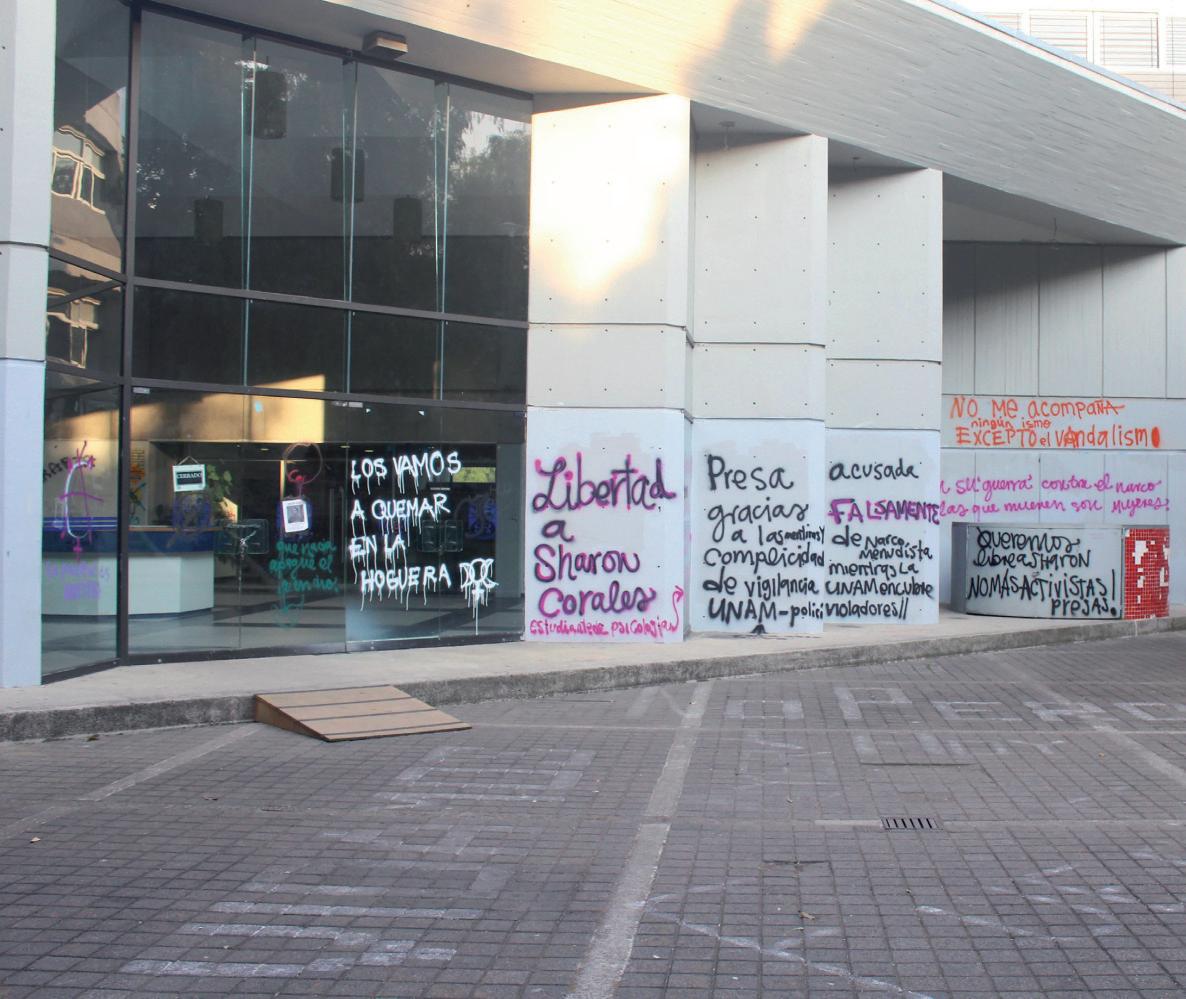 CERRADO
que nada
apague el
LOS VAMOS
A QUEMAR
EN LA
HOGUERA
Libertad
a
Sharon
Corales
Estudiante de psicología
Presa
gracias
a las mentiras y
complicidad
de vigilancia
UNAM-polici
acusada
FALSAMENTE
de narco
menudista
mientras la
UNAM encubre
violadores//
NO ME acompaña
ningun ismo
EXCEPTO el vAndalismo
su "guerra" contra el narco
las que mueren son mujeres!
queremos
libre a SHARON
NO MÁS ACTIVISTAS!
PRESAS.